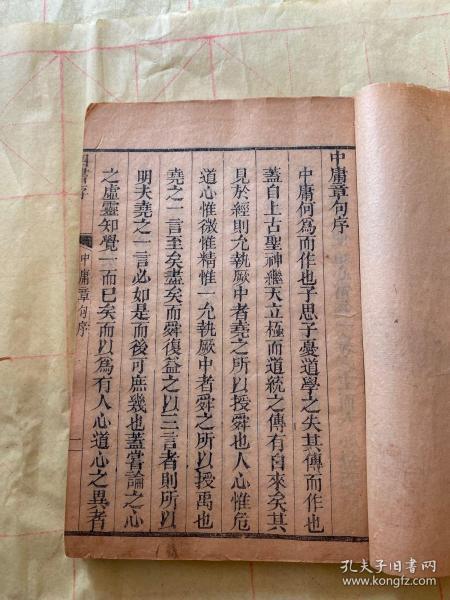 中庸章句序
中庸何爲而作也子思子憂道學之失其傳而作也
蓋自上古聖神繼天立極而道統之傳有自來矣其
見於經則允執厥中者堯之所以授舜也人心惟危
道心惟微惟精惟一允執厥中者舜之所以授禹也
堯之一言至矣盡矣而舜復益之以三言者則所以
明夫堯之一言必如是而後可庶幾也蓋嘗論之心
之虛靈知覺一而已矣而以爲有人心道心之異者
中庸章句序
一
孔夫子旧书网
www.kongfz.com